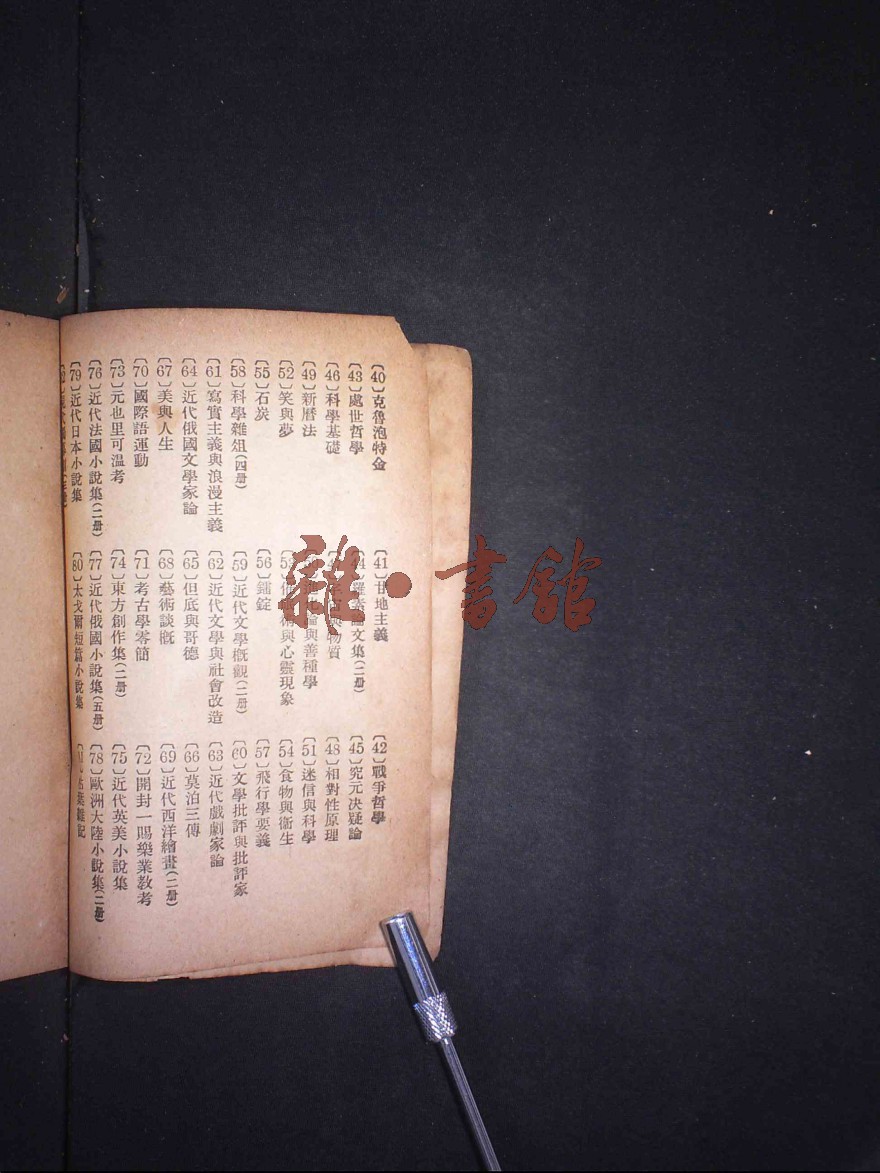 〔40〕克魯泡特金 〔41〕甘地主義 〔42〕戰爭哲學
〔43〕處世哲學 〔44〕羅素論文集(二册) 〔45〕究元決疑論
〔46〕科學基礎 與物質 〔48〕相對性原理
〔49〕新曆法 化論與善種學 〔51〕迷信與科學
〔52〕笑與夢 術與心靈現象 〔54〕食物與衞生
〔55〕石炭 〔56〕鐳錠 〔57〕飛行學要義
〔58〕科學雜俎(四册) 〔59〕近代文學概觀(二册) 〔60〕文學批評與批評家
〔61〕寫實主義與浪漫主義 〔62〕近代文學與社會改造 〔63〕近代戲劇家論
〔64〕近代俄國文學家論 〔65〕但底與哥德 〔66〕莫泊三傳
〔67〕美與人生 〔68〕藝術談概 〔69〕近代西洋繪畫(二册)
〔70〕國際語運動 〔71〕考古學零簡 〔72〕開封一賜樂業教考
〔73〕元也里可溫考 〔74〕東方創作集(二册) 〔75〕近代英美小說集
〔76〕近代法國小說集(二册) 〔77〕近代俄國小說集(五册) 〔78〕歐洲大陸小說集(二册)
〔79〕近代日本小說集 〔80〕太戈爾短篇小說集 雜記
雜·書館